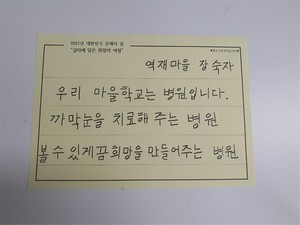 2021년 대한민국 문해의 달
"글자에 담은 희망의 여정"
역재마을 장숙자
우리 마을학교는 병원입니다.
까막눈을 치료해 주는 병원
볼 수 있게 꿈희망을 만들어주는 병원